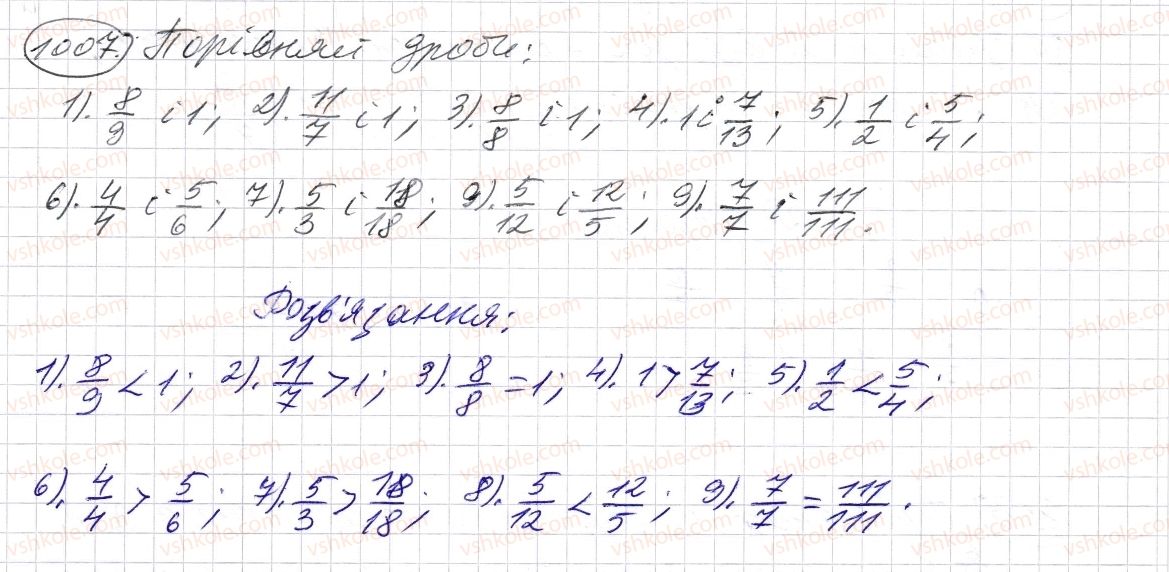 1007.) Порівняй дроби:
1). 8/9 і 1; 2). 11/7 і 1; 3). 8/8 і 1; 4). 1 і 7/13; 5). 1/2 і 5/4;
6). 4/4 і 5/6; 7). 5/3 і 18/18; 9). 5/12 і 12/5; 9). 7/7 і 111/111.
Розв'язання:
1). 8/9 < 1; 2). 11/7 > 1; 3). 8/8 = 1; 4). 1 > 7/13; 5). 1/2 < 5/4;
6). 4/4 > 5/6; 7). 5/3 > 18/18; 8). 5/12 < 12/5; 9). 7/7 = 111/111.
vshkole.com